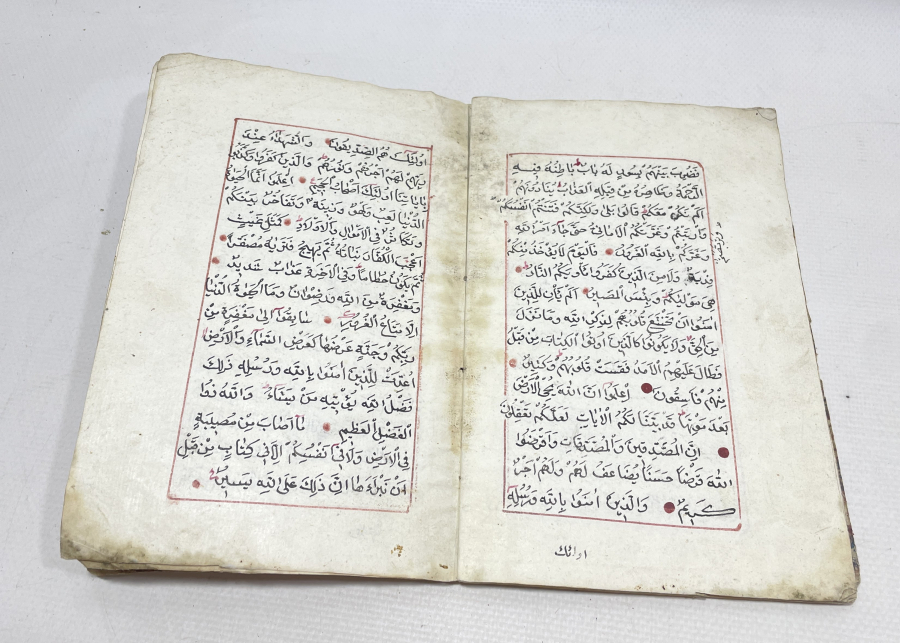 فضرب بينهم بسور له باب باطنه فيه
الرحمة وظاهره من قبله العذاب ينادونهم
الم نكن معكم قالوا بلى ولكنكم فتنتم انفسكم
وارتبتم وغرتكم الاماني حتى جاء امر الله
وغركم بالله الغرور فاليوم لا يؤخذ منكم
فدية ولا من الذين كفروا مأويكم النار
هي موليكم وبئس المصير الم يأن للذين
امنوا ان تخشع قلوبهم لذكر الله وما نزل
من الحق ولا يكونوا كالذين اوتوا الكتاب من قبل
فطال عليهم الامد فقست قلوبهم وكثير
منهم فاسقون اعلموا ان الله يحيي الارض
بعد موتها قد بينا لكم الآيات لعلكم تعقلون
ان المصدقين والمصدقات واقرضوا
الله قرضا حسنا يضاعف لهم ولهم اجر
كريم والذين امنوا بالله ورسله
اولئك
اولئك هم الصديقون والشهداء عند
ربهم لهم اجرهم ونورهم والذين كفروا وكذبوا
بآياتنا اولئك اصحاب الجحيم اعلموا انما الحيوة
الدنيا لعب ولهو وزينة وتفاخر بينكم
وتكاثر في الاموال والاولاد كمثل غيث
اعجب الكفار نباته ثم يهيج فتريه مصفرا
ثم يكون حطاما وفي الاخرة عذاب شديد
ومغفرة من الله ورضوان وما الحيوة الدنيا
الا متاع الغرور سابقوا الى مغفرة من
ربكم وجنة عرضها كعرض السماء والارض
اعدت للذين امنوا بالله ورسله ذلك
فضل الله يؤتيه من يشاء والله ذو
الفضل العظيم ما اصاب من مصيبة
في الارض ولا في انفسكم الا في كتاب من قبل
ان نبراها ان ذلك على الله يسير